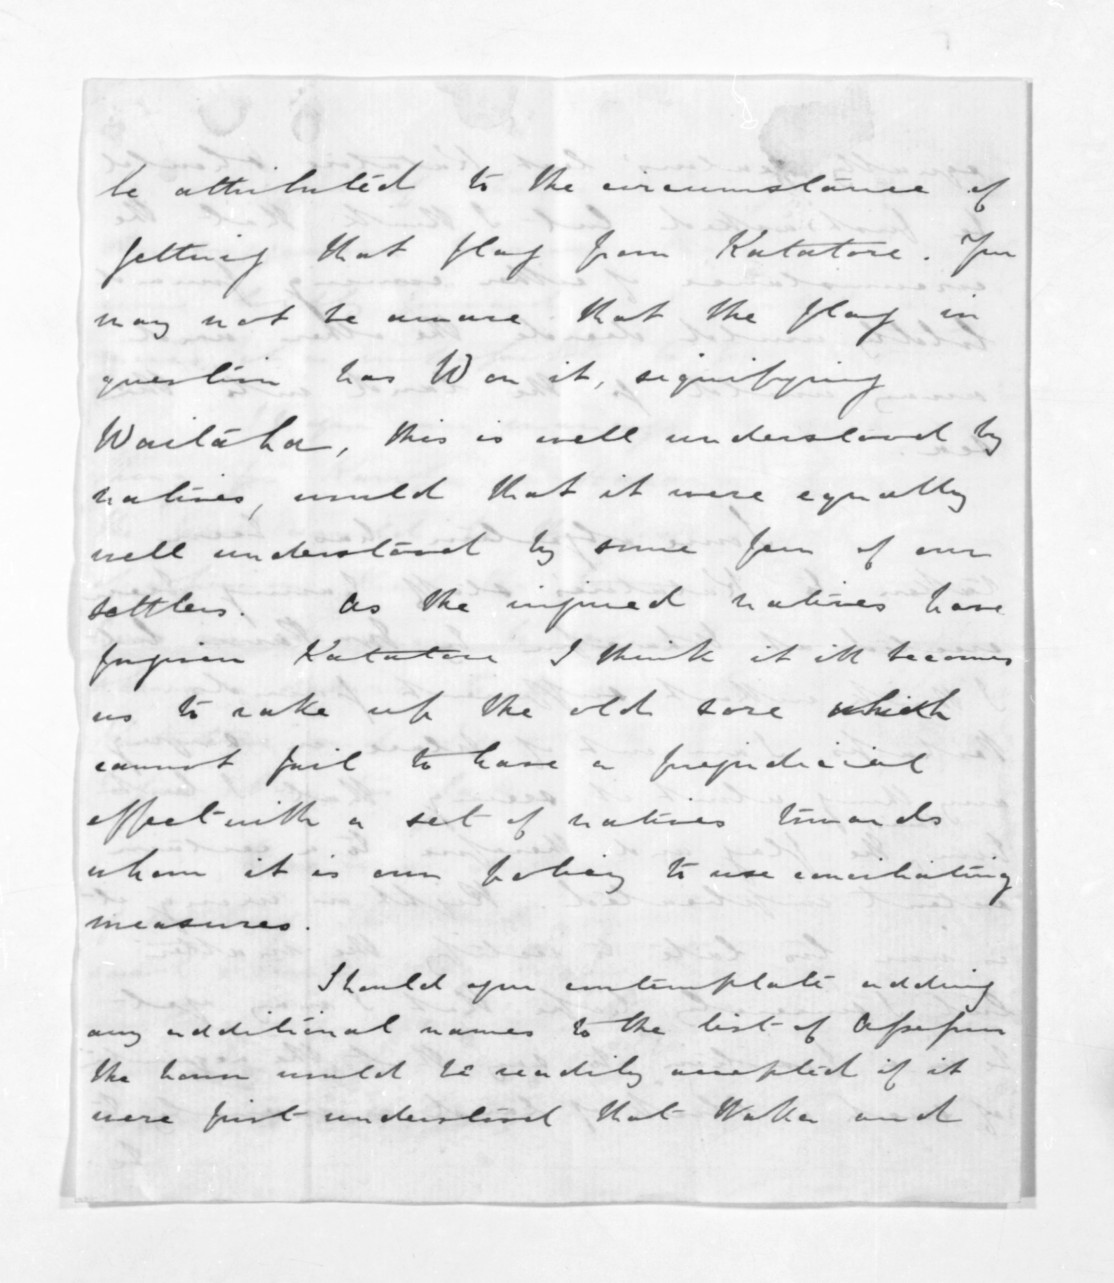 be attributed to the circumstance of
getting that flag from Katatore. You
may not be aware that the flag in
question has W on it, signifying
Waitaha, this is well understood by
natives, would that it were equally
well understood by some few of our
settlers. As the injured natives have
forgiven Katatore I think it ill becomes
us to rake up the old sore which
cannot fail to have a prejudicial
effect with a set of natives towards
whom it is our policy to use conciliating
measures.
Should you contemplate adding
any additional names to the list of Assessors
the honor would be readily accepted if it
were first understood that Waka and